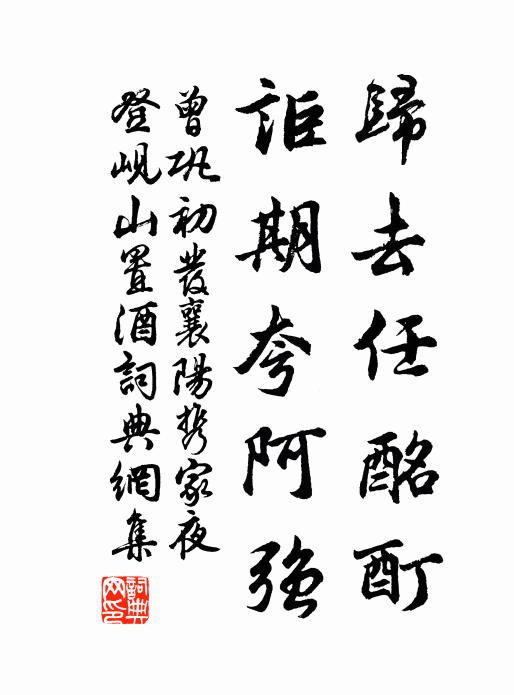 歸去任酩酊
詎期夸阿強
曾巩初發襄陽携家夜
登峴山置酒詞典網集
詞典